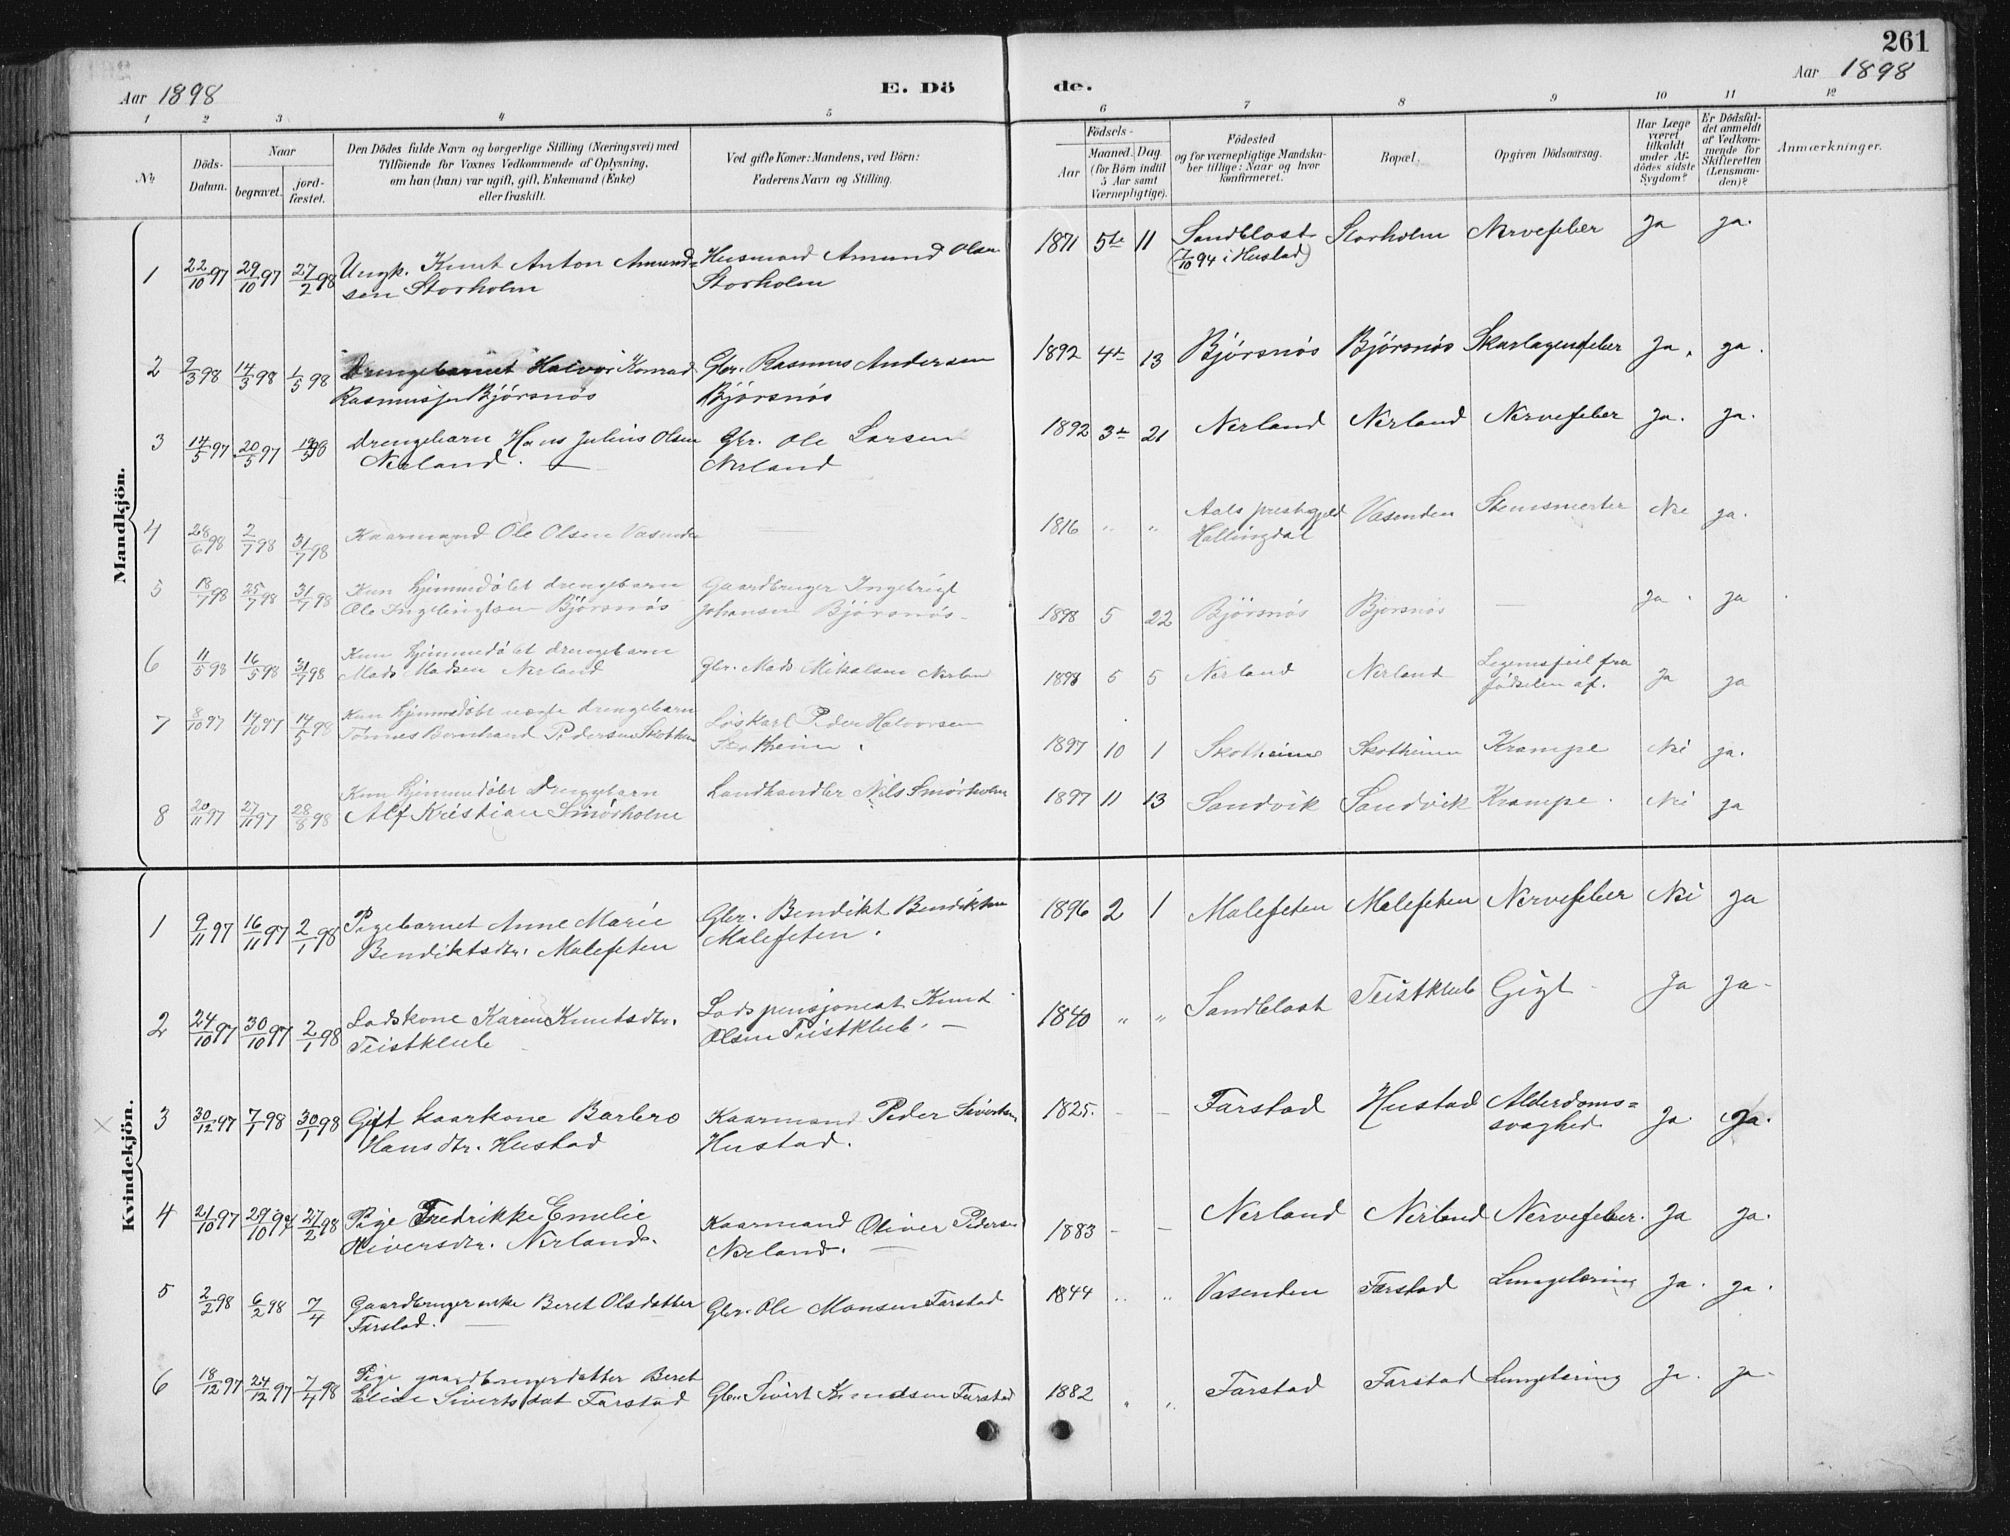 261
Aar 1898
E. Dö
de.
Aar 1898
1 2 3 4 5 6 7 8 9 10 11 12
№
Döds-
Datum.
Naar
begravet.
jord-
fæstet.
Den Dödes fulde Navn og borgerlige Stilling (Næringsvei) med
Tilföiende for Voxnes Vedkommende af Oplysning,
om han (hun) var ugift, gift, Enkemand (Enke)
eller fraskilt.
Ved gifte Koner: Mandens, ved Börn:
Faderens Navn og Stilling.
Födsels-
Aar
Maaned. Dag
(for Börn indtil
5 Aar samt
Værnepligtige).
Födested
og for værnepligtige Mandska-
ber tillige: Naar og hvor
konfirmeret.
Bopæl.
Opgiven Dödsaarsag.
Har Læge
været
tilkaldt
under Af-
dödes sidste
Sygdom?
Er Dödsfal-
det anmeldt
af Vedkom-
mende for
Skifteretten
(Lensman-
den)?
Anmærkninger.
Mandkjön.
1 22/10 97 29/10 97 27/2 98 Ungk. Knut Anton Amund= Husmand Amund Olsen 1871 5te 11 Sandblost Storholm Nervefeber Ja ja.
sen Storholm Storholm (7/10 94 i Hustad)
2 9/3 98 14/3 98 1/5 98 Drengebarnet Halvor Konrad Gbr. Rasmus Andersen 1892 4de 13 Björsnös Björsnös Skarlagensfeber Ja. ja.
Rasmussen Björsnös Björsnös
3 14/5 97 20/5 97 Drengebarn Hans Julius Olsen Gbr. Ole Larsen 1892 3de 21 Nerland Nerland Nervefeber ja. ja.
Nerland. — Nerland
4 28/6 98 2/7 98 31/7 98 Kaarmand Ole Olsen Vasenden 1816 " " Aals prestegjeld Vasenden Stensmerter Nei ja.
Hallingdal
5 18/7 98 25/7 98 31/7 98 Kun hjemmedöbt drengebarn Gaardbruger Ingebrigt 1898 5 22 Björsnös Björsnös — Ja. ja
Ole Ingebrigtsen Björsnös Johansen Björsnös.
6 11/5 98 16/5 98 31/7 98 Kun hjemmedöbt drengebarn Gbr. Mads Mikalsen Nerland 1898 5 5 Nerland Nerland Legemsfeil fra ja ja
Mads Madsen Nerland födselen af.
7 8/10 97 14/10 97 14/5 98 Kun hjemmedöbt uægte drengebarn Löskarl Peder Halvorsen 1897 10 1 Skotheim Skotheim Krampe Nei ja.
Tönnes Bernhard Pedersen Skotheim Skotheim.
8 20/11 97 27/11 97 28/8 98 Kun hjemmedöbt Drengebarn Landhandler Nils Smörholm 1897 11 13 Sandvik Sandvik Krampe. Nei ja
Alf Kristian Smörholm
Kvindekjön.
1 9/11 97 16/11 97 2/1 98 Pigebarnet Anne Marie Gbr. Bendikt Bendiktsen 1896 2 1 Malefeten Malefeten Nervefeber Nei ja
Bendiktsdtr. Malefeten Malefeten.
2 24/10 97 30/10 97 2/1 98 Lodskone Karen Knutsdtr. Lodspensjonist Knud 1840 " " Sandblost Teistklub Gigt Ja ja.
Teistklub Olsen Teistklub. —
3 30/12 97 7/1 98 30/1 98 Gift kaarkone Barbro Kaarmand Peder Sivertsen 1825. — — Farstad Hustad Alderdoms= Ja ja.
Hansdtr. Hustad Hustad. svaghed
4 21/10 97 29/10 97 27/2 98 Pige Fredrikke Emelie Kaarmand Oliver Pedersen 1883 — — Nerland Nerland Nervefeber. Ja ja.
Oliversdtr. Nerland. Nerland. —
5 2/2 98 6/2 98 7/4 Gaardbruger enke Beret Olsdatter Gbr. Ole Monsen Farstad 1844 " " Vasenden Farstad Lungetæring Ja. ja.
Farstad. —
6 18/12 97 24/12 97 7/4 98 Pige gaardbrugerdatter Beret Gbr. Sivert Knudsen Farstad 1882 " " Farstad Farstad Lungetæring Ja. ja.
Eline Sivertsdat Farstad